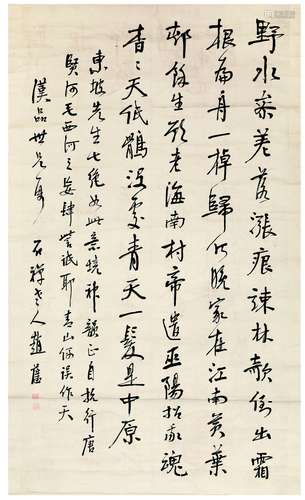 野水參差落漲痕疎林欹倒出霜
根扁舟一棹歸何晚家在江南黃葉
邨餘生欲老海南村帝遣巫陽招我魂
杳〻天低鶻沒處青天一髮是中原
東坡先生七絕如此景境神韻正自抗行唐
賢何毛西河之妄肆詆耶青山誤作天
漢品世兄 石禪老人趙藩